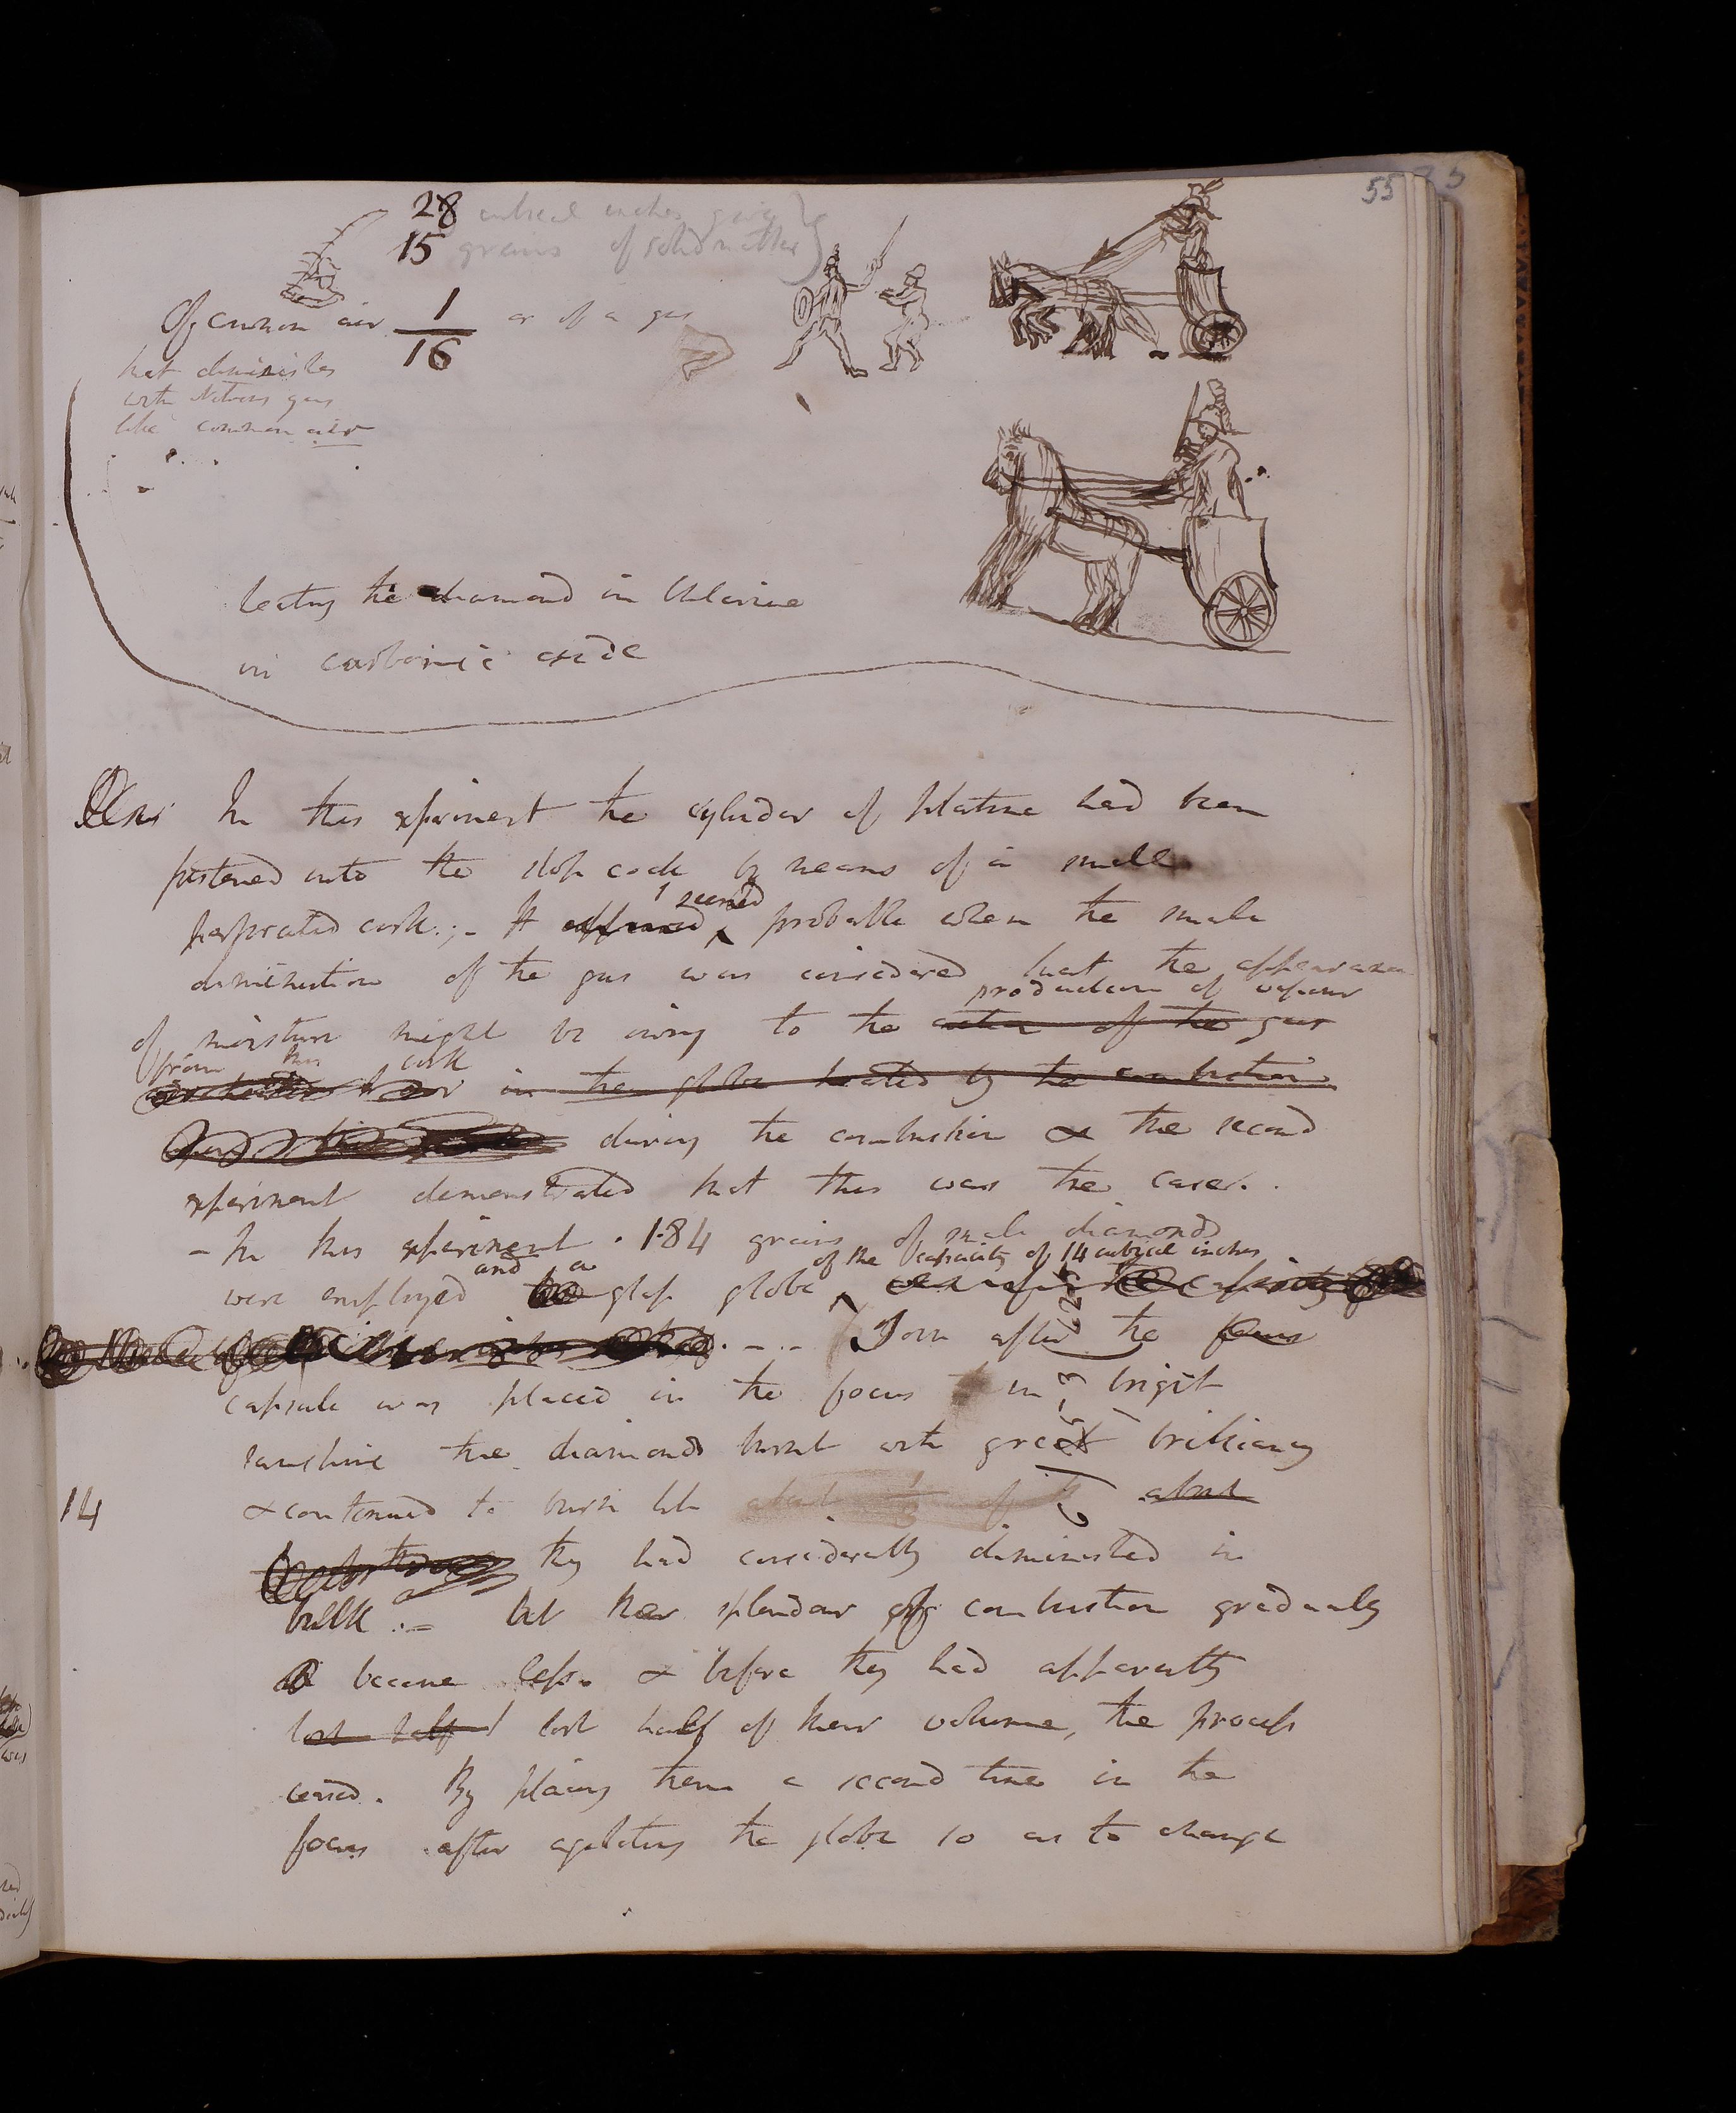 55
28 cubical inches give
15 grains of solid matter
Of common air 1/16 or of a gas
that diminishes
with Nitrous gas
like common air
heating the diamond in Chlorine
in carbonic oxide
In this experiment the cylinder of platina had been
fastened into the stop cock by means of a small
perforated cork.;- It appeared seemed probable when the small
diminution of the gas was considered that the appearance
production of vapour
of moisture might be owing to the action of the gas
from this cork
in the globe heated by the combustion
during the combustion & the second
experiment demonstrated that this was the case.
- In this experiment . 1.84 grains of small diamonds
and a of the capacity of 14 cubical inches
were employed glass globe
Soon after the focus
capsule was placed in the focus in bright
sunshine the diamonds burnt with great brilliancy
14
& continued to burn till about 1/3 of about
they had considerably diminished in
bulk .- but their splendour of combustion gradually
became less. & before they had apparently
lost half lost half of their volume, the process
ceased. By placing them a second time in the
focus after agitating the globe so as to change